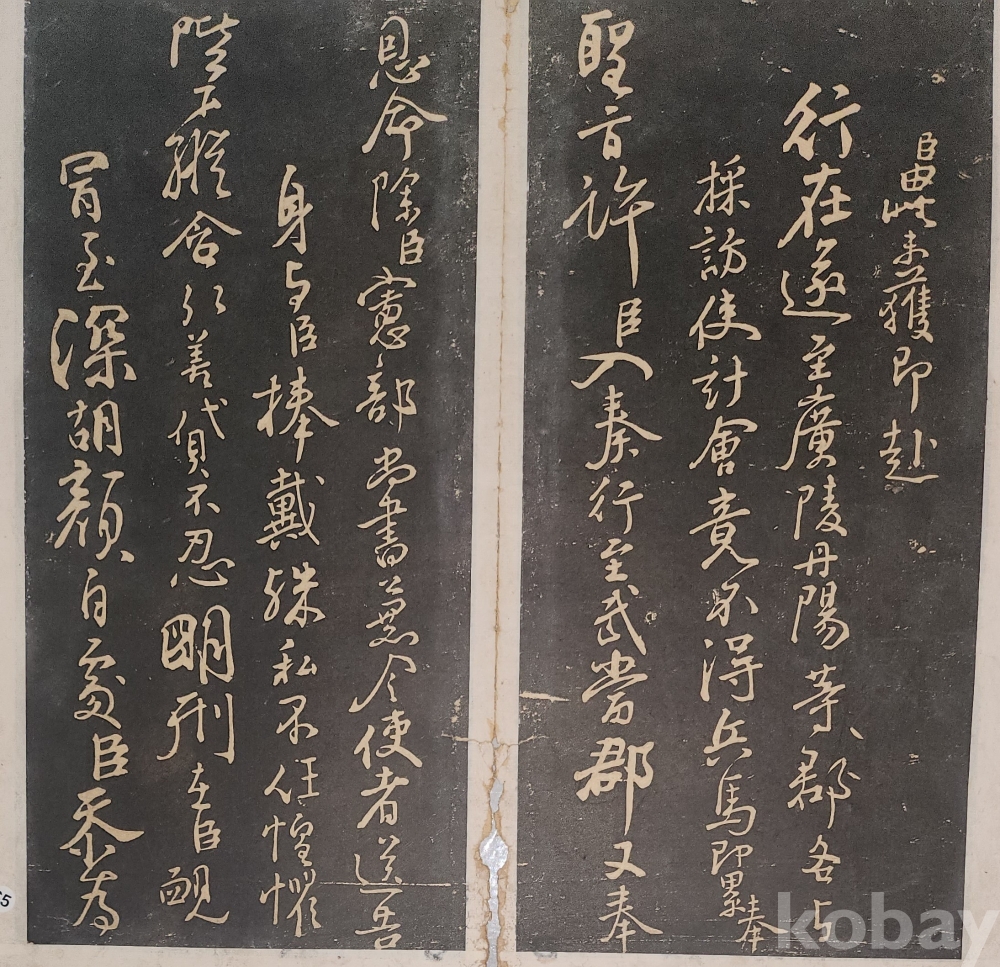 臣由此未獲即赴
行在遂至廣陵丹陽等郡各与
採訪使計會竟不得兵馬即累奉
聖旨許臣入奏行至武當郡又奉
恩命除臣憲部尚書兼令使者送告
身与臣捧戴殊私不任惶懼
陛下縱含弘善貸不忍明刑在臣靦
冒至深胡顔自處臣忝為
kobay